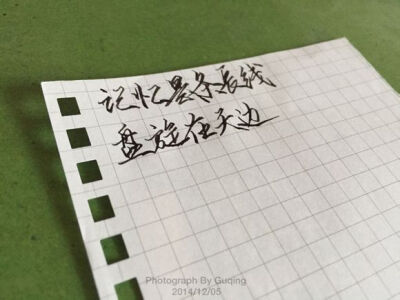 记忆是条长线
盘旋在天边
Photograph By Guqing
2014/12/05